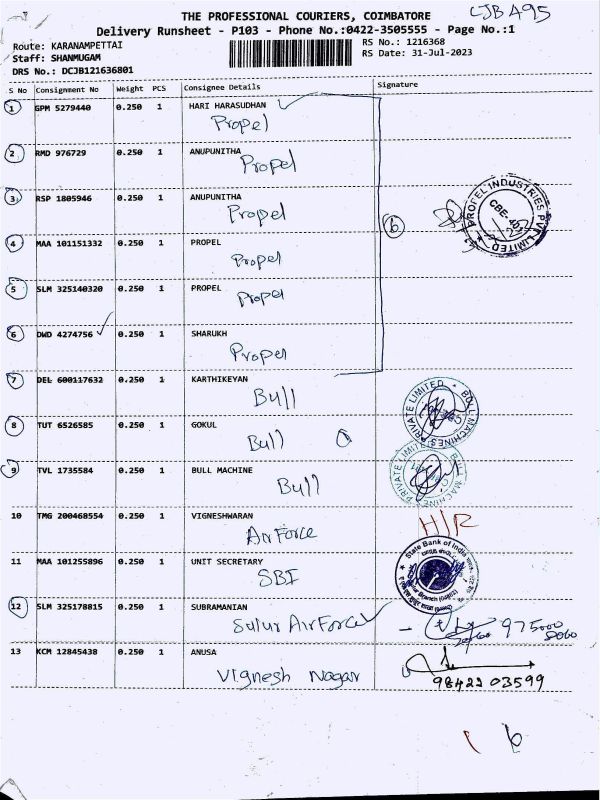 CJB A95
THE PROFESSIONAL COURIERS, COIMBATORE
Delivery Runsheet - P103 - Phone No.:0422-3505555 - Page No.:1
Route: KARANAMPETTAI
RS No.: 1216368
Staff: SHANMUGAM
RS Date: 31-Jul-2023
DRS No.: DCJB121636801
S No Consignment No Weight PCS Consignee Details Signature
1 GPM 5279440 0.250 1 HARI HARASUDHAN
Propel
2 RMD 976729 0.250 1 ANUPUNITHA
Propel
3 RSP 1805946 0.250 1 ANUPUNITHA
Propel
PROPEL INDUSTRIES PVT LIMITED
CBE-402
6
4 MAA 101151332 0.250 1 PROPEL
Propel
5 SLM 325140320 0.250 1 PROPEL
Propel
6 DWD 4274756 0.250 1 SHARUKH
Propel
7 DEL 600117632 0.250 1 KARTHIKEYAN
Bull
BULL MACHINES PRIVATE LIMITED
8 TUT 6526585 0.250 1 GOKUL
Bull
9 TVL 1735584 0.250 1 BULL MACHINE
Bull
BULL MACHINES PRIVATE LIMITED
10 TMG 200468554 0.250 1 VIGNESHWARAN
Airforce
H/R
11 MAA 101255896 0.250 1 UNIT SECRETARY
SBI
State Bank of India
12 SLM 325178815 0.250 1 SUBRAMANIAN
Sulur AirForce
13 KCM 12845438 0.250 1 ANUSA
Vignesh Nagar
98422 03599